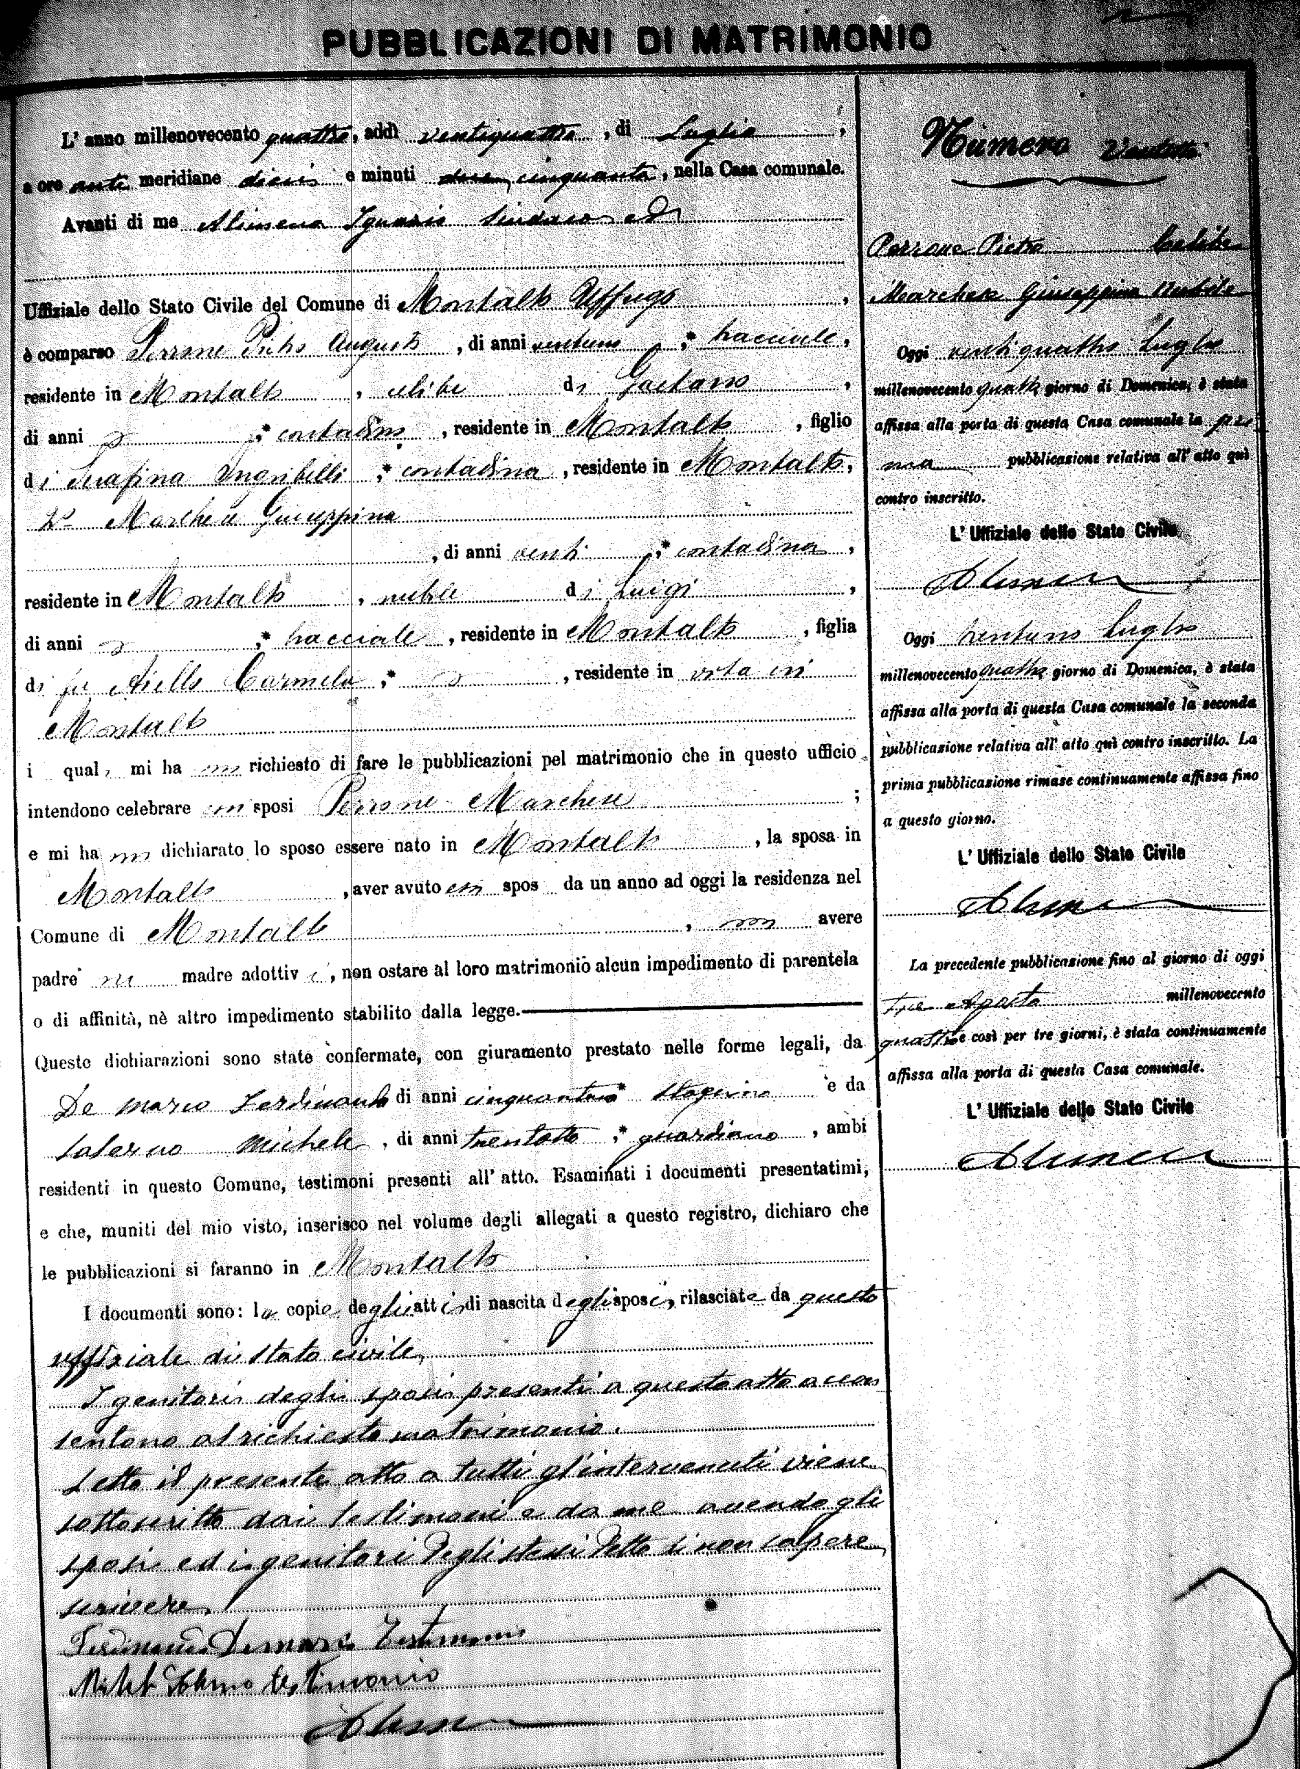 PUBBLICAZIONI DI MATRIMONIO
L' anno millenovecento quattro, addì ventiquattro, di Luglio,
a ore anti meridiane dieci e minuti cinquanta, nella Casa comunale.
Avanti di me Alimena Ignazio Sindaco ed
Uffiziale dello Stato Civile del Comune di Montalto Uffugo,
è comparso Perrone Pietro Augusto, di anni ventuno, * bracciale,
residente in Montalto, celibe di Gaetano,
di anni , * contadino, residente in Montalto, figlio
di Serafina Ingribelli, * contadina, residente in Montalto,
2° Marchese Giuseppina
, di anni venti, * contadina,
residente in Montalto, nubile di Luigi,
di anni , * bracciale, residente in Montalto, figlia
di fu Aiello Carmela, * , residente in vita in
Montalto
i quali mi hanno richiesto di fare le pubblicazioni pel matrimonio che in questo ufficio
intendono celebrare essi sposi Perrone - Marchese ;
e mi hanno dichiarato lo sposo essere nato in Montalto, la sposa in
Montalto, aver avuto essi spos da un anno ad oggi la residenza nel
Comune di Montalto, non avere
padre nè madre adottivi, non ostare al loro matrimonio alcun impedimento di parentela
o di affinità, nè altro impedimento stabilito dalla legge.
Queste dichiarazioni sono state confermate, con giuramento prestato nelle forme legali, da
De Marco Ferdinando di anni * e da
Salerno Michele, di anni trentotto, * guardiano, ambi
residenti in questo Comune, testimoni presenti all' atto. Esaminati i documenti presentatimi,
e che, muniti del mio visto, inserisco nel volume degli allegati a questo registro, dichiaro che
le pubblicazioni si faranno in Montalto
I documenti sono: le copie degli atti di nascita degli sposi, rilasciate da questo
uffiziale di stato civile,
I genitori degli sposi presenti a questo atto accon
sentono al richiesto matrimonio.
Letto il presente atto a tutti gl'intervenuti viene
sottoscritto dai testimoni e da me avendo gli
sposi ed i genitori degli stessi detto di non sapere
scrivere.
Ferdinando Demarco Testimonio
Salerno testimonio
Alimena
Numero Ventotto
Perrone Pietro Celibe
Marchese Giuseppina Nubile
Oggi ventiquattro Luglio
millenovecento quattro giorno di Domenica, è stata
affissa alla porta di questa Casa comunale la pri
ma pubblicazione relativa all' atto quì
contro inscritto.
L' Uffiziale dello Stato Civile
Alimena
Oggi trentuno Luglio
millenovecento quattro giorno di Domenica, è stata
affissa alla porta di questa Casa comunale la seconda
pubblicazione relativa all' atto quì contro inscritto. La
prima pubblicazione rimase continuamente affissa fino
a questo giorno.
L' Uffiziale dello Stato Civile
Alimena
La precedente pubblicazione fino al giorno di oggi
tre Agosto millenovecento
quattro e così per tre giorni, è stata continuamente
affissa alla porta di questa Casa comunale.
L' Uffiziale dello Stato Civile
Alimena